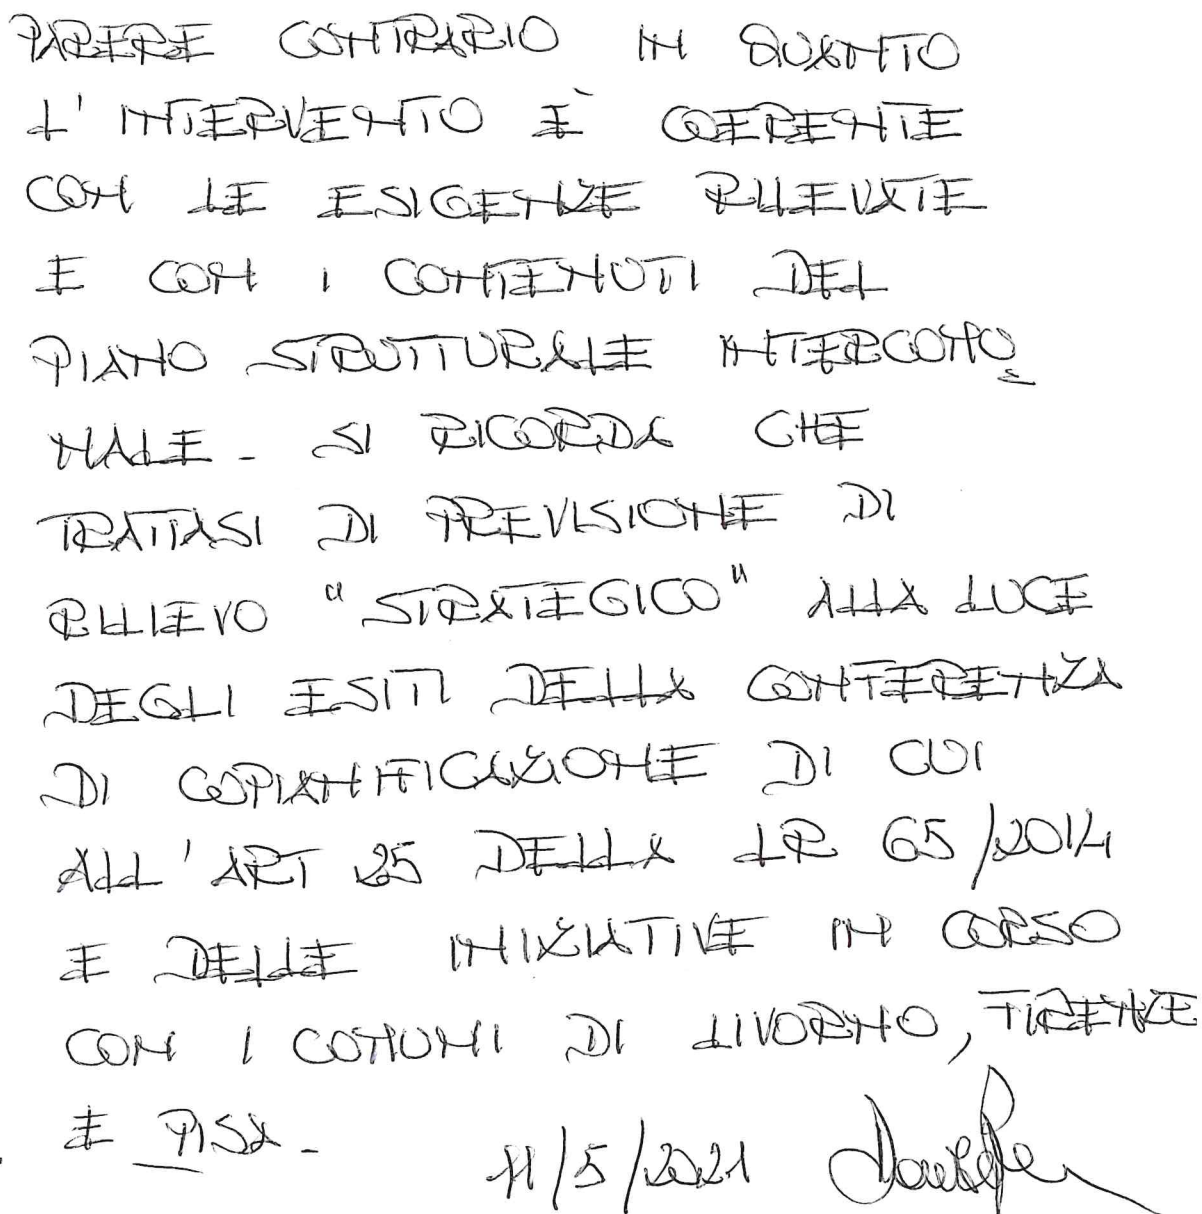 PARERE CONTRARIO IN QUANTO
L'INTERVENTO È COERENTE
CON LE ESIGENZE RILEVATE
E CON I CONTENUTI DEL
PIANO STRUTTURALE INTERCOMU=
NALE - SI RICORDA CHE
TRATTASI DI PREVISIONE DI
RILIEVO "STRATEGICO" ALLA LUCE
DEGLI ESITI DELLA CONFERENZA
DI COPIANIFICAZIONE DI CUI
ALL'ART 25 DELLA LR 65/2014
E DELLE INIZIATIVE IN CORSO
CON I COMUNI DI LIVORNO, FIRENZE
E PISA -
11/5/2021